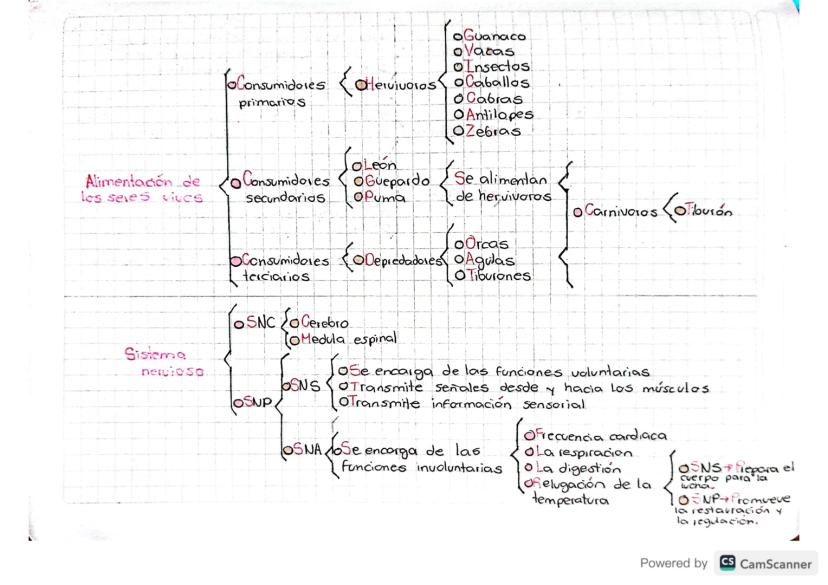 Consumidores
primarios
Hervivoros
Guanaco
Vacas
Insectos
Caballos
Cabras
Antilapes
Zebras
Alimentación de
los seres vivos
Consumidores
secundarios
León
Guepardo
Puma
Se alimentan
de hervivoros
Carnivoros
Tiburón
Consumidores
terciarios
Depredadores
Orcas
Agulas
Tiburones
Sistema
nervioso
SNC
Cerebro
Medula espinal
SNP
SNS
Se encarga de las funciones voluntarias
Transmite señales desde y hacia los músculos
Transmite información sensorial
SNA
Se encarga de las
funciones involuntarias
Frecuencia cardiaca
La respiracion
La digestión
Relugación de la
temperatura
SNS→Prepara el
cuerpo para la
lucha.
SNP→Promueve
la restauración y
la regulación.
Powered by CS CamScanner